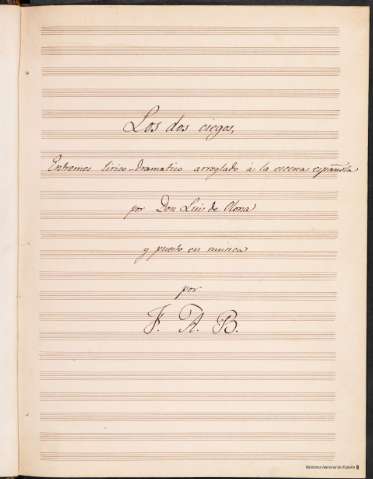 Los dos ciegos,
Entremes lirico-dramatico arreglado à la escena española
por Don Luis de Olona
y puesto en musica
por
F. A. B.
Biblioteca Nacional de España